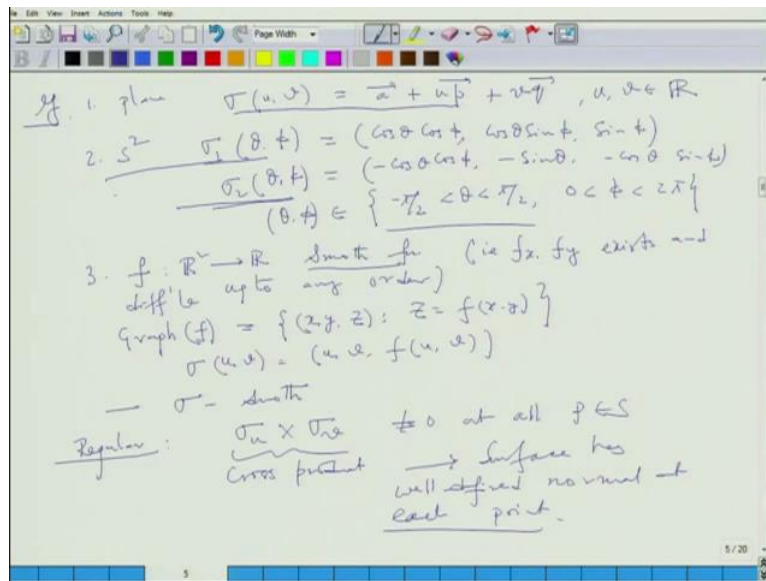 File Edit View Insert Actions Tools Help
Page Width
B I
Eg. 1. plane σ(u, v) = a⃗ + u p⃗ + v q⃗ , u, v ∈ ℝ
2. S² σ₁(θ, φ) = (cos θ cos φ, cos θ sin φ, sin φ)
σ₂(θ, φ) = (-cos θ cos φ, -sin θ, -cos θ sin φ)
(θ, φ) ∈ { -π/2 < θ < π/2, 0 < φ < 2π }
3. f : ℝ² → ℝ smooth fn (ie fx, fy exists and
diff'le upto any order)
Graph(f) = {(x, y, z) : z = f(x, y)}
σ(u, v) = (u, v, f(u, v))
— σ - smooth
Regular : σᵤ × σᵥ ≠ 0 at all p ∈ S
cross product → surface has
well defined normal at
each point.
5 / 20
5